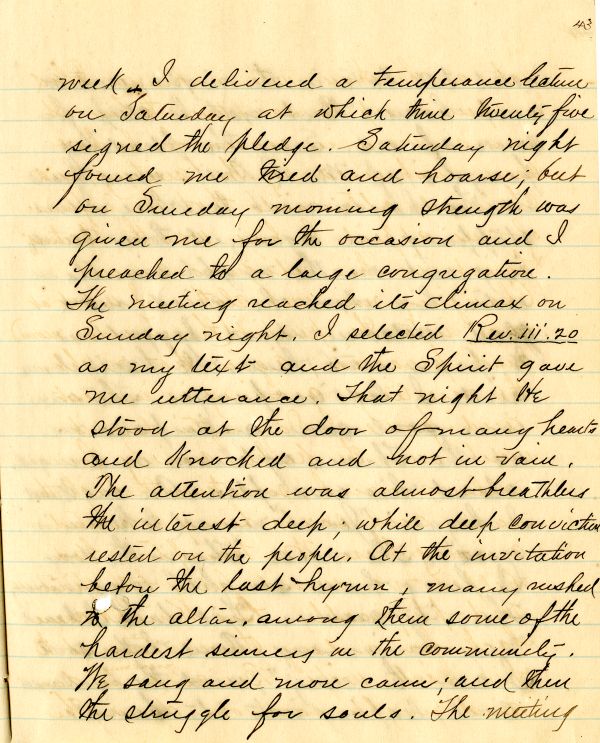 43
week. I delivered a temperance lecture
on Saturday at which time twenty five
signed the pledge. Saturday night
found me tired and hoarse; but
on Sunday morning strength was
given me for the occasion and I
preached to a large congregation.
The meeting reached its climax on
Sunday night. I selected Rev. iii. 20
as my text and the Spirit gave
me utterance. That night He
stood at the door of many hearts
and knocked and not in vain.
The attention was almost breathless
the interest deep; while deep conviction
rested on the people. At the invitation
before the last hymn, many rushed
to the altar, among them some of the
hardest sinners in the community.
We sang and more came; and then
the struggle for souls. The meeting